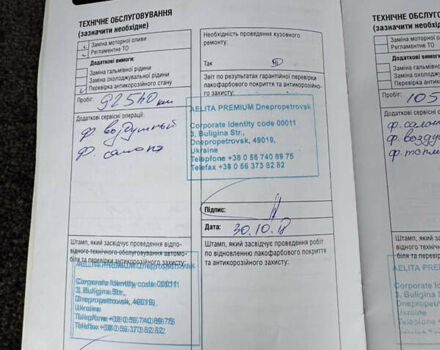 ТЕХНІЧНЕ ОБСЛУГОВУВАННЯ
(зазначити необхідне)
Заміна моторної оливи
Регламентне ТО
Додаткові вимоги:
Заміна гальмівної рідини
Заміна охолоджувальної рідини
Перевірка антикорозійного стану
Пробіг: 92540 км
Додаткові сервісні операції:
ф. воздушный
ф. салона
Штамп, який засвідчує проведення відпо-
відного технічного обслуговування автомо-
біля та перевірки антикорозійного захисту:
AELITA PREMIUM Dnepropetrovsk
Corporate Identity code 00011
3, Buligina Str.,
Dnepropetrovsk, 49019,
Ukraine
Telephone +38 0 56 740 89 75
Telefax +38 0 56 373 82 82
Необхідність проведення кузовного
ремонту:
Так
Звіт по результатах гарантійної перевірки
лакофарбового покриття та антикорозійно-
го захисту:
AELITA PREMIUM Dnepropetrovsk
Corporate identity code 00011
3, Buligina Str.,
Dnepropetrovsk, 49019,
Ukraine
Telephone +38 0 56 740 89 75
Telefax +38 0 56 373 82 82
Підпис:
Дата: 30.10.18
Штамп, який засвідчує проведення робіт
по відновленню лакофарбового покриття
та антикорозійного захисту:
ТЕХНІЧНЕ ОБСЛУГО
(зазначити необхідн
Заміна моторної
Регламентне ТО
Додаткові вимоги:
Заміна гальмівн
Заміна охолодж
Перевірка анти
Пробіг: 105
Додаткові сервісні оп
ф. салон
ф. возду
ф. топл
Штамп, який засвідчу
відного технічного об
біля та перевірки ант
AELITA PREM
Corporate Ide
3, Buligina St
Dnepropetrov
Ukraine
Telephone +3
Telefax +38 0